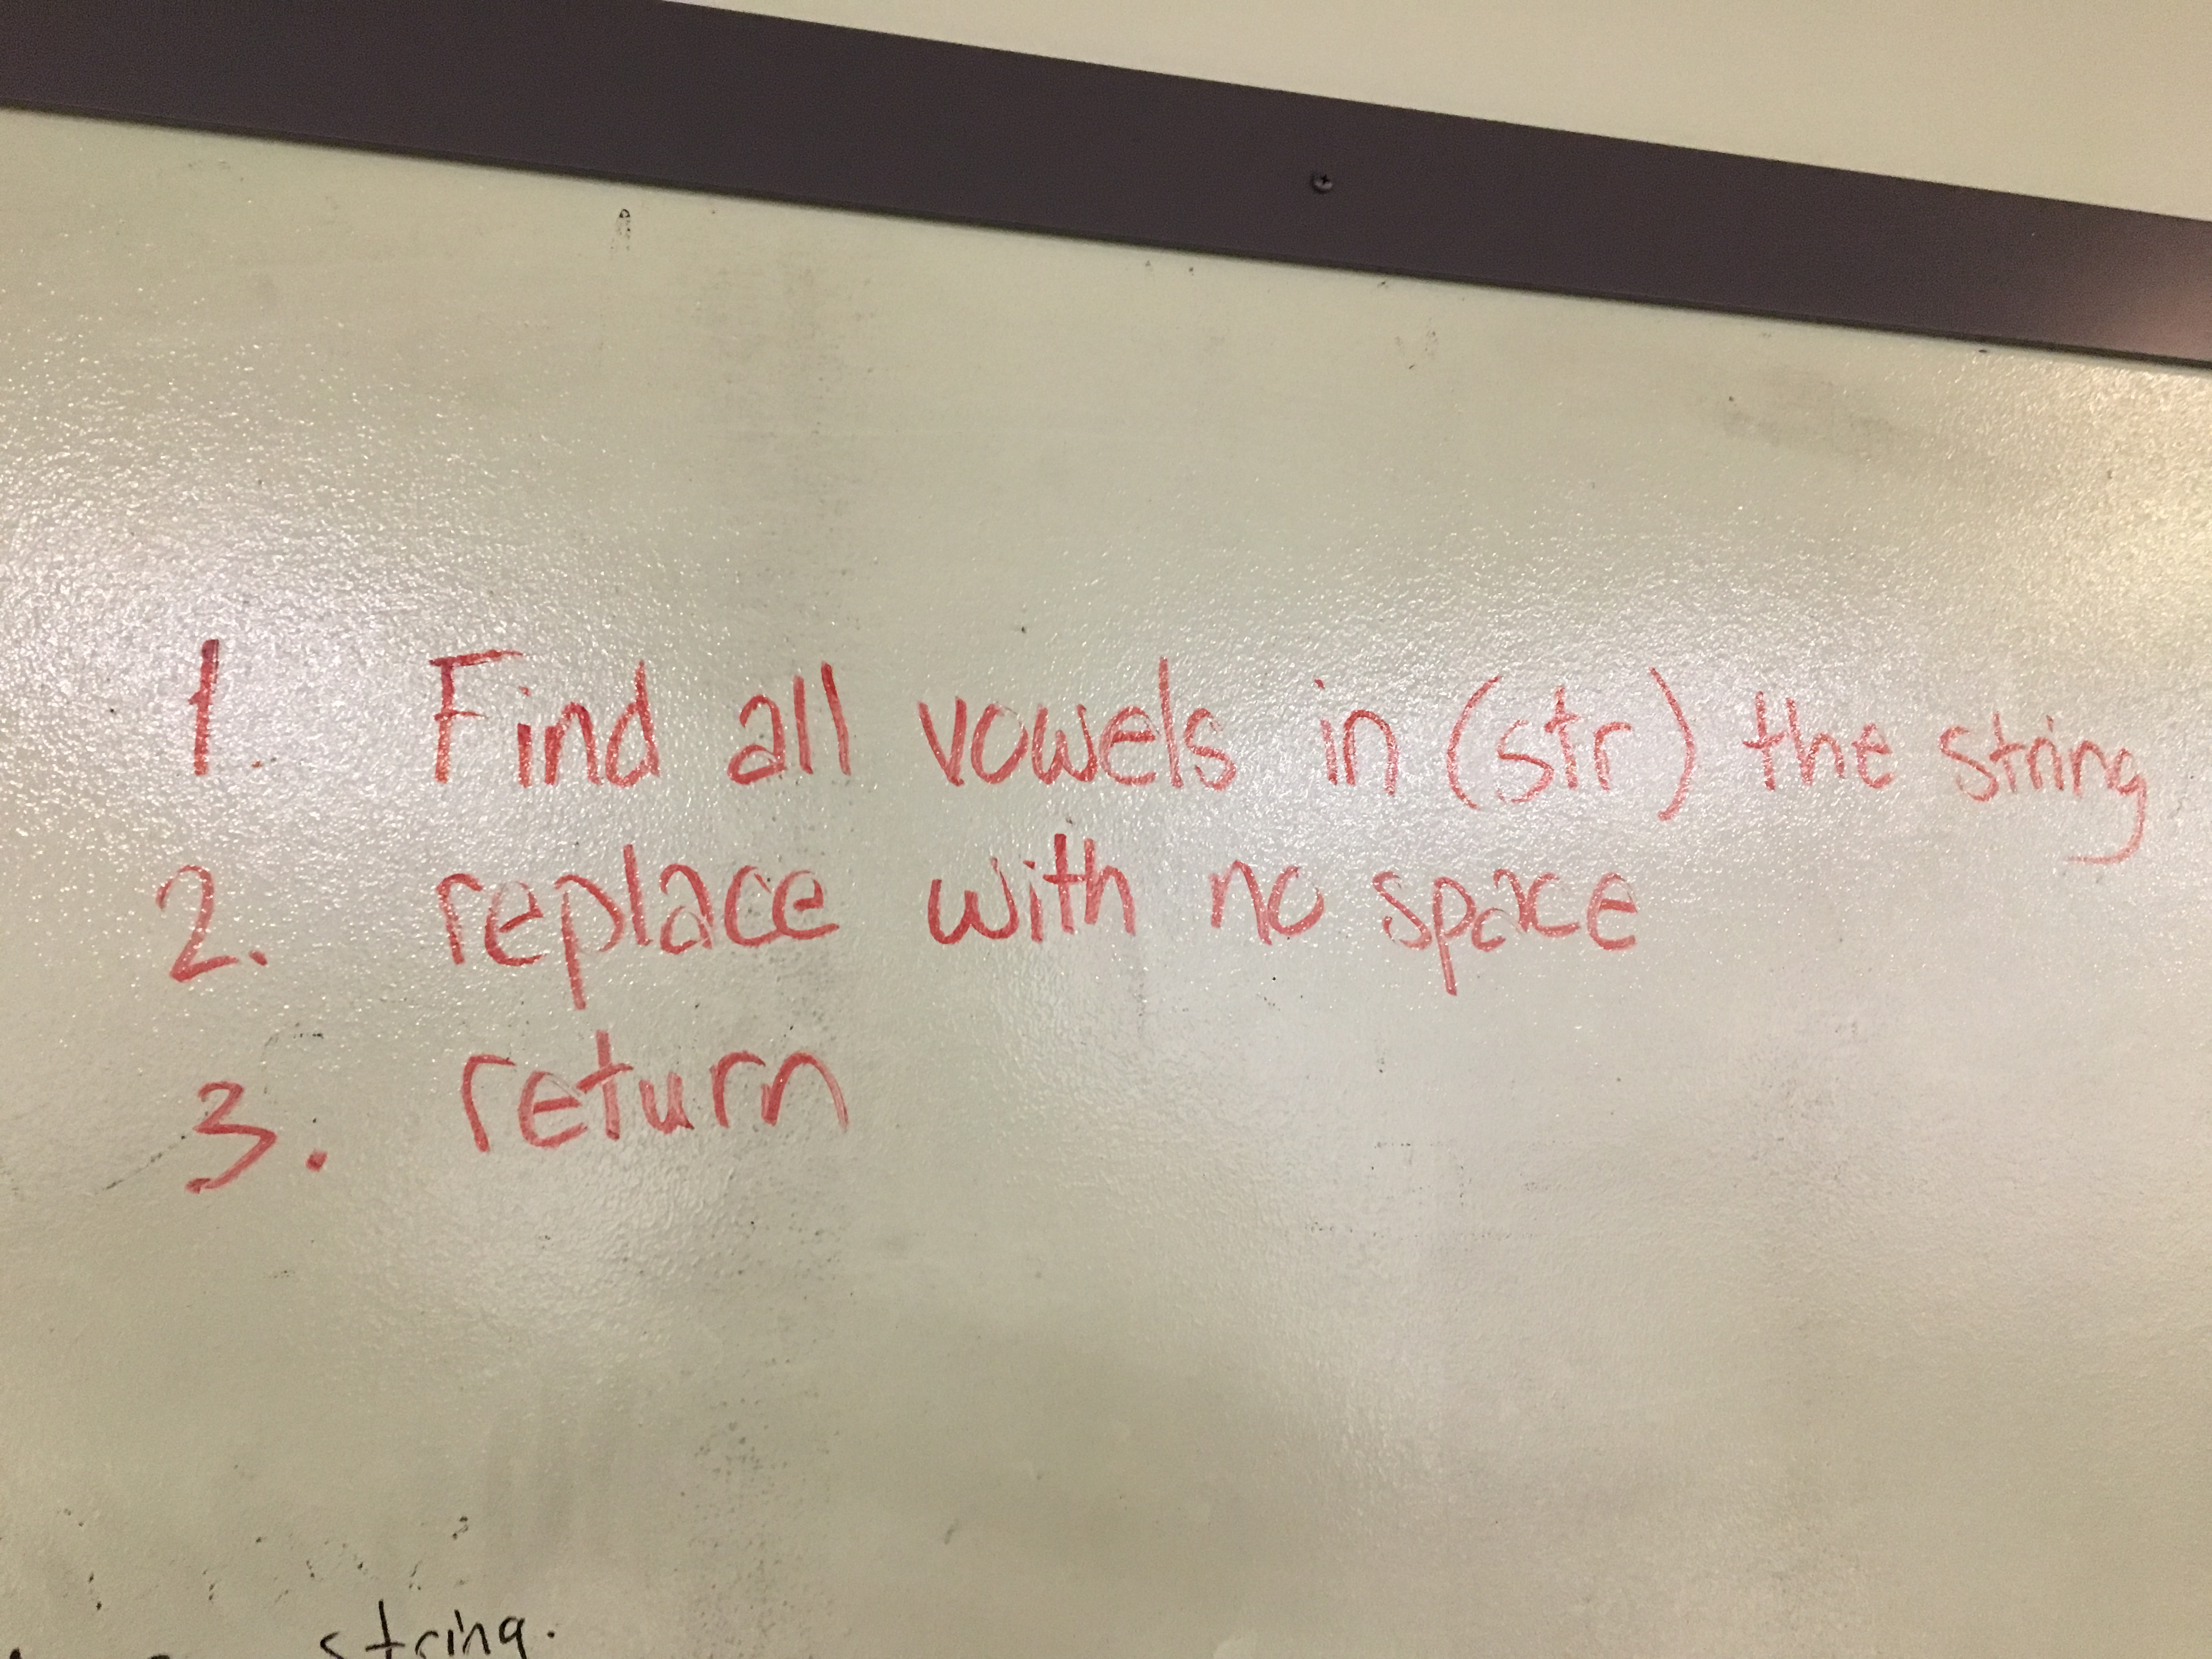 1. Find all vowels in (str) the string
2. replace with no space
3. return
string.